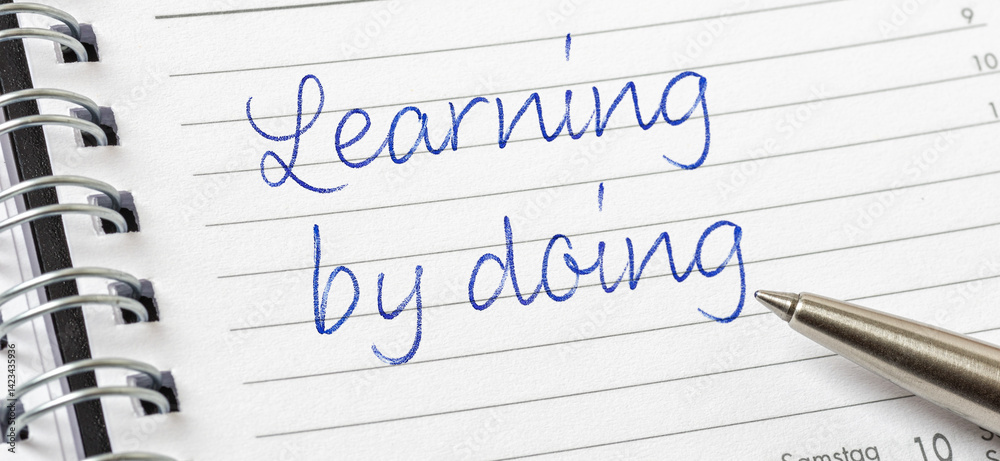 9
10
Learning
by doing
Samstag 10
Adobe Stock | #1423435936